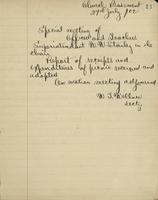 Church Basement 21
July 1st
Special meeting of
Officers and Teachers
Superintendent W. W. Stanley in the
chair
Report of receipts and
expenditures of picnic received and
adopted
On motion meeting adjourned
Secty